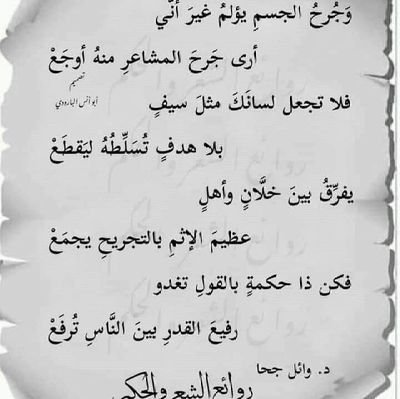 وَجُرحُ الجسمِ يؤلمُ غيرَ أنّي
أرى جَرحَ المشاعرِ منهُ أوجَعْ
تصميم
أبو أنس البارودي
فلا تجعل لسانَكَ مثلَ سيفٍ
بلا هدفٍ تُسَلِّطُهُ ليَقطَعْ
يفرِّقُ بينَ خلَّانٍ وأهلٍ
عظيمَ الإثمِ بالتجريحِ يجمَعْ
فكن ذا حكمةٍ بالقولِ تغدو
رفيعَ القدرِ بينَ النَّاسِ تُرفَعْ
د. وائل جحا
روائع الشعر والحكم